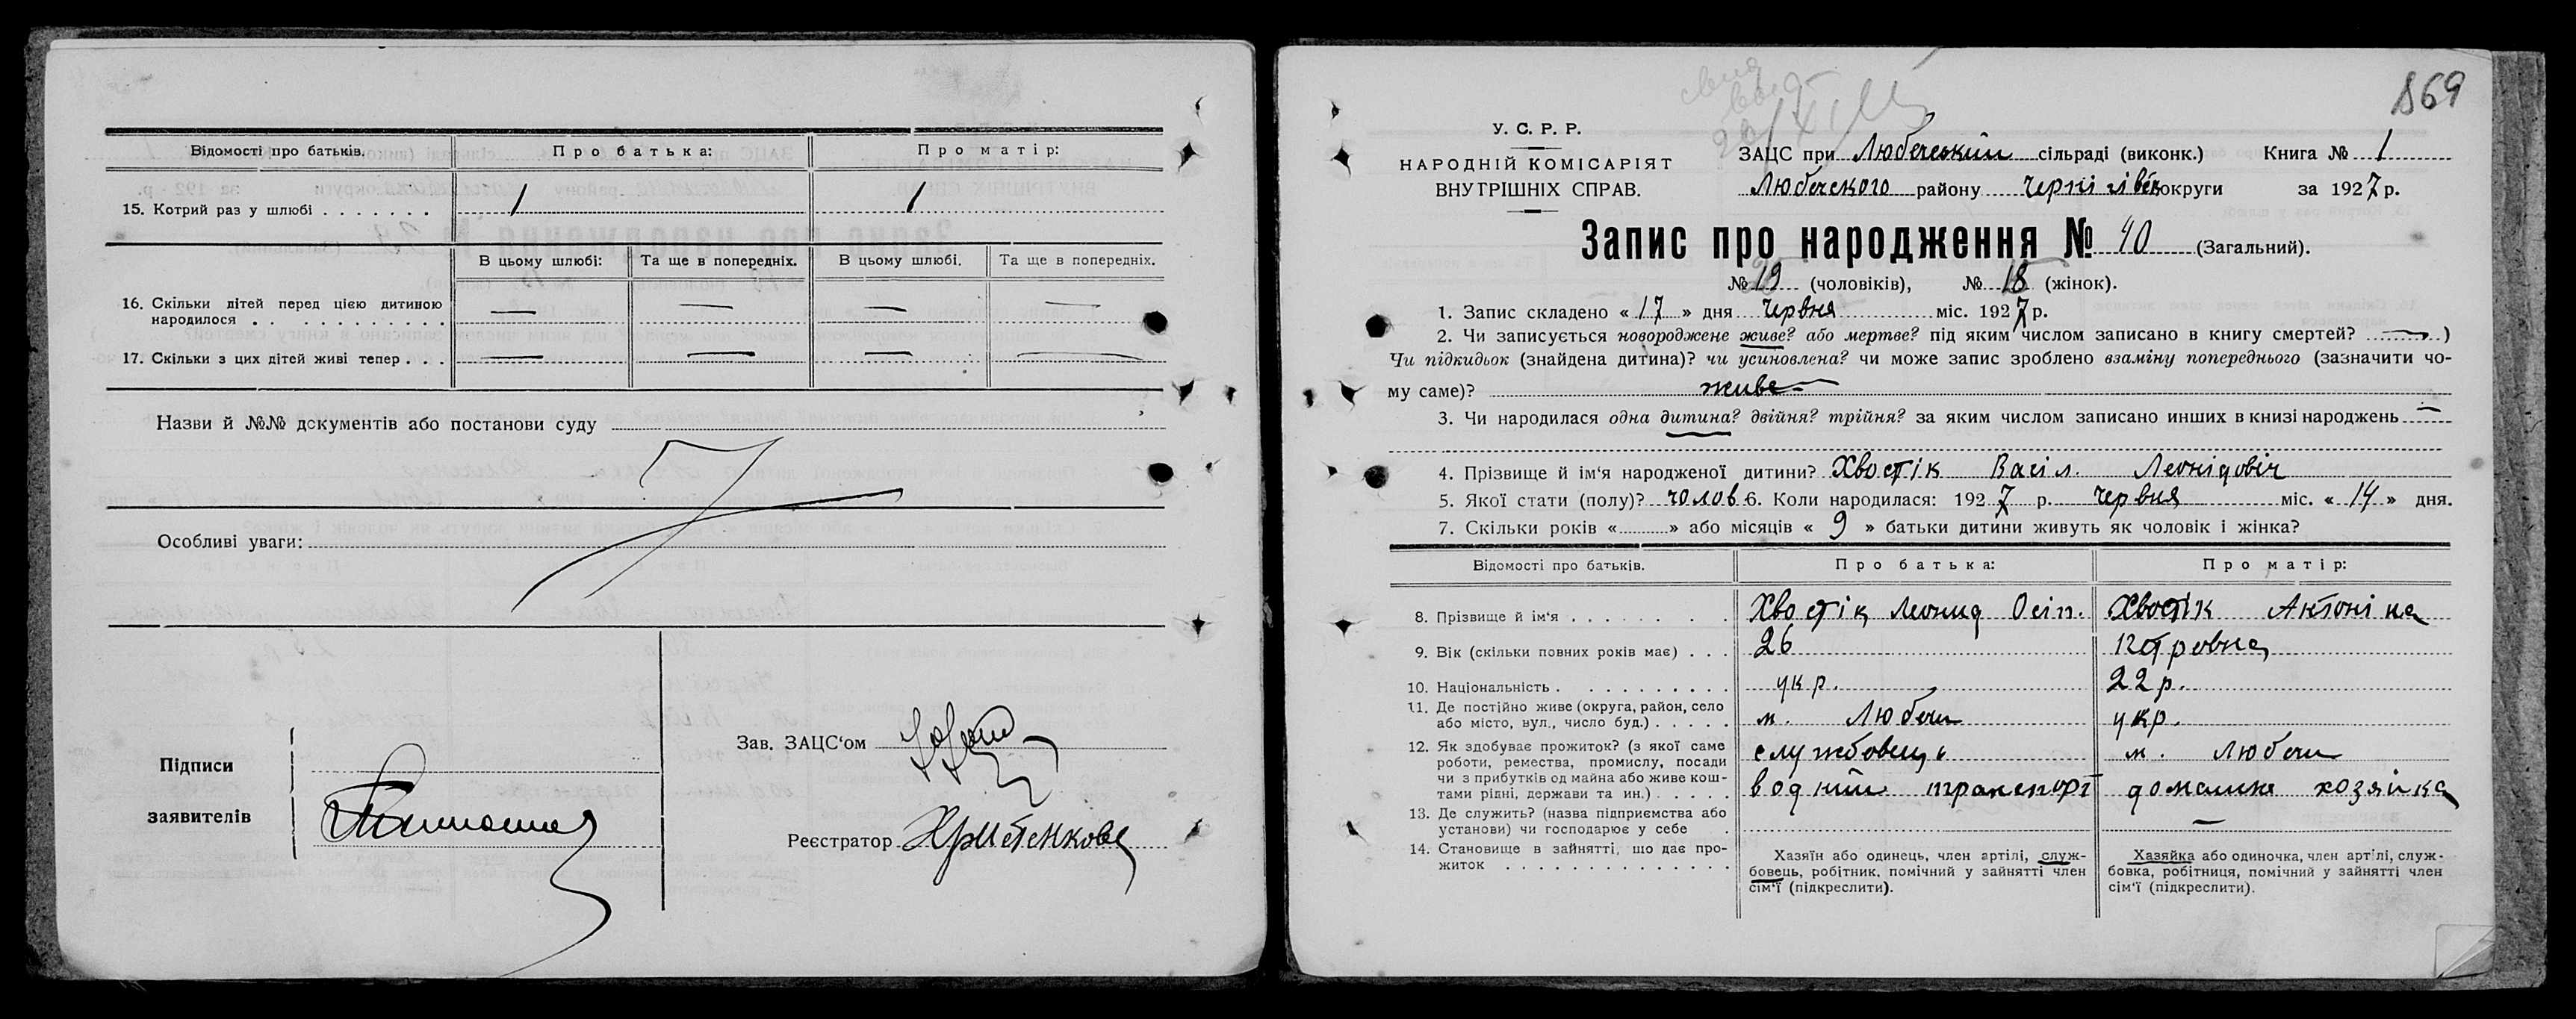 Відомості про батьків. Про батька: Про матір:
15. Котрий раз у шлюбі . . . . . . . 1 1
В цьому шлюбі: Та ще в попередніх. В цьому шлюбі. Та ще в попередніх.
16. Скільки дітей перед цією дитиною — — — —
народилося . . . . . . . . . . .
17. Скільки з цих дітей живі тепер . . . — — — —
Назви й №№ документів або постанови суду
Особливі уваги:
Підписи
заявителів
Зав. ЗАЦС‘ом
Реєстратор
869
У. С. Р. Р.
НАРОДНІЙ КОМІСАРІЯТ
ВНУТРІШНІХ СПРАВ.
ЗАЦС при Любечський сільраді (виконк.) Книга № 1
Любечского району Чернігівськ округи за 1927 р.
Запис про народження № 40 (Загальний).
№ (чоловіків), № 18 (жінок).
1. Запис складено « 17 » дня червня міс. 1927 р.
2. Чи записується новороджене живе? або мертве? під яким числом записано в книгу смертей? — )
Чи підкидьок (знайдена дитина)? чи усиновлена? чи може запис зроблено взаміну попереднього (зазначити чо-
му саме)? живе —
3. Чи народилася одна дитина? двійня? трійня? за яким числом записано инших в книзі народжень —
4. Прізвище й ім‘я народженої дитини? Хвостік Васіл. Леонідовіч
5. Якої стати (полу)? чолов. 6. Коли народилася: 1927 р. червня міс. « 14 » дня.
7. Скільки років « » або місяців « 9 » батьки дитини живуть як чоловік і жінка?
Відомості про батьків. Про батька: Про матір:
8. Прізвище й ім‘я . . . . . . . Хвостік Леонид Осіп. Хвостік Антоніна
9. Вік (скільки повних років має) . . . 26 Петровна
10. Національність . . . . . . . . . . укр. 22 р.
11. Де постійно живе (округа, район, село
або місто, вул., число буд.) . . . . . м. Любеч укр.
12. Як здобуває прожиток? (з якої саме службовець м. Любеч
роботи, ремества, промислу, посади
чи з прибутків од майна або живе кош- водний транспорт домашня хозяйка
тами рідні, держави та ин.) . . . . .
13. Де служить? (назва підприємства або
установи) чи господарює у себе . —
14. Становище в зайнятті, що дає про-
житок . . . . . . . . . . . . . .
Хазяїн або одинець, член артілі, служ-
бовець, робітник, помічний у зайнятті член
сім‘ї (підкреслити).
Хазяйка або одиночка, член артілі, служ-
бовка, робітниця, помічний у зайнятті член
сім‘ї (підкреслити).